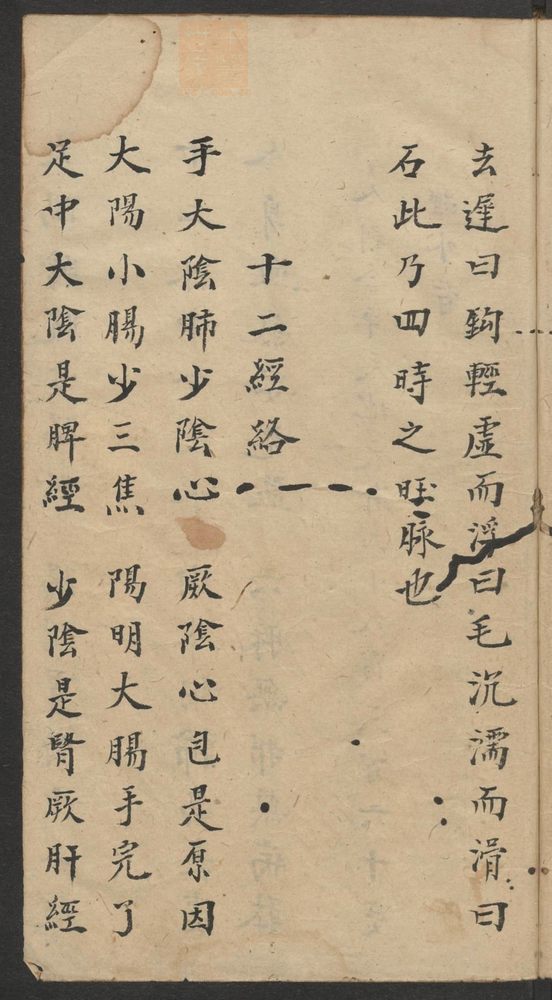 去遲曰鈎輕虛而浮曰毛沉濡而滑曰
石此乃四時之旺脉也
十二經絡
手大陰肺少陰心 厥陰心包是原因
大陽小腸少三焦 陽明大腸手完了
足中大陰是脾經 少陰是腎厥肝經